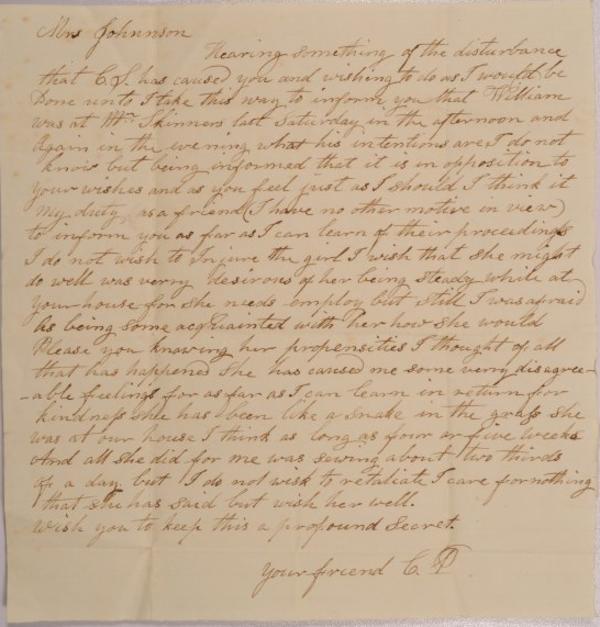 Mrs Johnnson
Hearing something of the disturbance
that C. S. has caused you and wishing to do as I would be
Done unto I take this way to inform you that William
was at Mr. Skinners last Saturday in the afternoon and
Again in the evening what his intentions are I do not
know but being informed that it is in opposition to
your wishes and as you feel just as I should I think it
My duty as a friend (I have no other motive in view)
to inform you as far as I can learn of their proceedings
I do not wish to Injure the girl I wish that she might
do well was verry desirous of her being steady while at
your house for she needs employ but still I was afraid
As being some acquainted with her how she would
Please you knowing her propensities I thought of all
that has happened she has caused me some very disagree-
-able feelings for as far as I can learn in return for
kindness shee has been like a snake in the grass she
was at our house I think as long as four or five weeks
And all she did for me was sewing about two thirds
of a day but I do not wish to retaliate I care for nothing
that she has said but wish her well.
Wish you to keep this a profound secret.
Your friend C. D